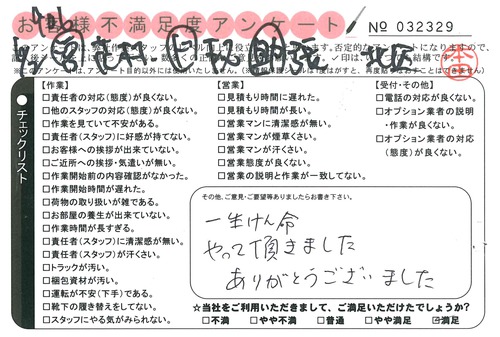 お客様不満足度アンケート
№ 032329
チェックリスト
【作業】
□責任者の対応(態度)が良くない。
□他のスタッフの対応(態度)が良くない。
□作業を見ていて不安がある。
□責任者(スタッフ)に好感が持てない。
□お客様への挨拶が出来ていない。
□ご近所への挨拶・気遣いが無い。
□作業開始前の内容確認がなかった。
□作業開始時間が遅れた。
□荷物の取り扱いが雑である。
□お部屋の養生が出来ていない。
□作業時間が長すぎる。
□責任者(スタッフ)に清潔感が無い。
□責任者(スタッフ)が汗くさい。
□トラックが汚い。
□梱包資材が汚い。
□運転が不安(下手)である。
□靴下の履き替えをしてない。
□スタッフにやる気がみられない。
【営業】
□見積もり時間に遅れた。
□見積もり時間が長い。
□営業マンに清潔感が無い。
□営業マンが煙草くさい。
□営業マンが汗くさい。
□営業態度が良くない。
□営業の説明と作業が一致してない。
【受付・その他】
□電話の対応が良くない。
□オプション業者の説明
・作業が良くない。
□オプション業者の対応
(態度)が良くない。
その他、ご意見・ご要望等ありましたらお書き下さい。
一生けん命
やって頂きました
ありがとうございました
☆当社をご利用いただきまして、ご満足いただけたでしょうか?
□不満 □やや不満 □普通 □やや満足 ☑満足